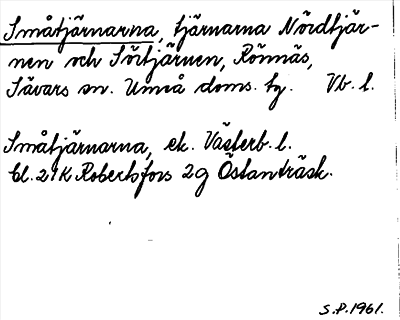 Småtjärnarna, tjärnarna Nördtjär-
nen och Sörtjärnen, Rönnäs,
Sävars sn. Umeå doms. tg. Vb. l.
Småtjärnarna, ek. Västerb. l.
bl. 21K Robertsfors 2g Östanträsk.
S.P. 1961.